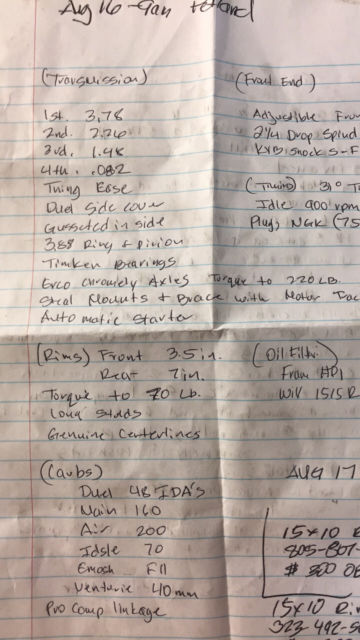 Aug 16
(Transmission)
1st. 3.78
2nd. 2.26
3rd. 1.48
4th. .082
Thing Ease
Duel side cover
Gusseted in side
3.88 Ring & Pinion
Timken Bearings
chromoly Axles Torque to 220 LB.
Steal Mounts & Brace with Motor
Automatic Starter
(Front End)
Adjustible
2 1/4 Drop Spind
KYB Shocks - F
(Timing) 31°
Idle 900 rpm
Plugs NGK (75
(Rims) Front 3.5 in.
Rear 7 in.
Torque to 70 Lb.
Long studs
Genuine Centerlines
(Oil Filter
From
WIX 1515 R
(Carbs)
Duel 48 IDA's
Main 160
Air 200
Idsle 70
Emosh F11
Venturie 40 mm
Pro Comp linkage
AUG 17
15x10
805-807-
$ 300
15x10
323-492-